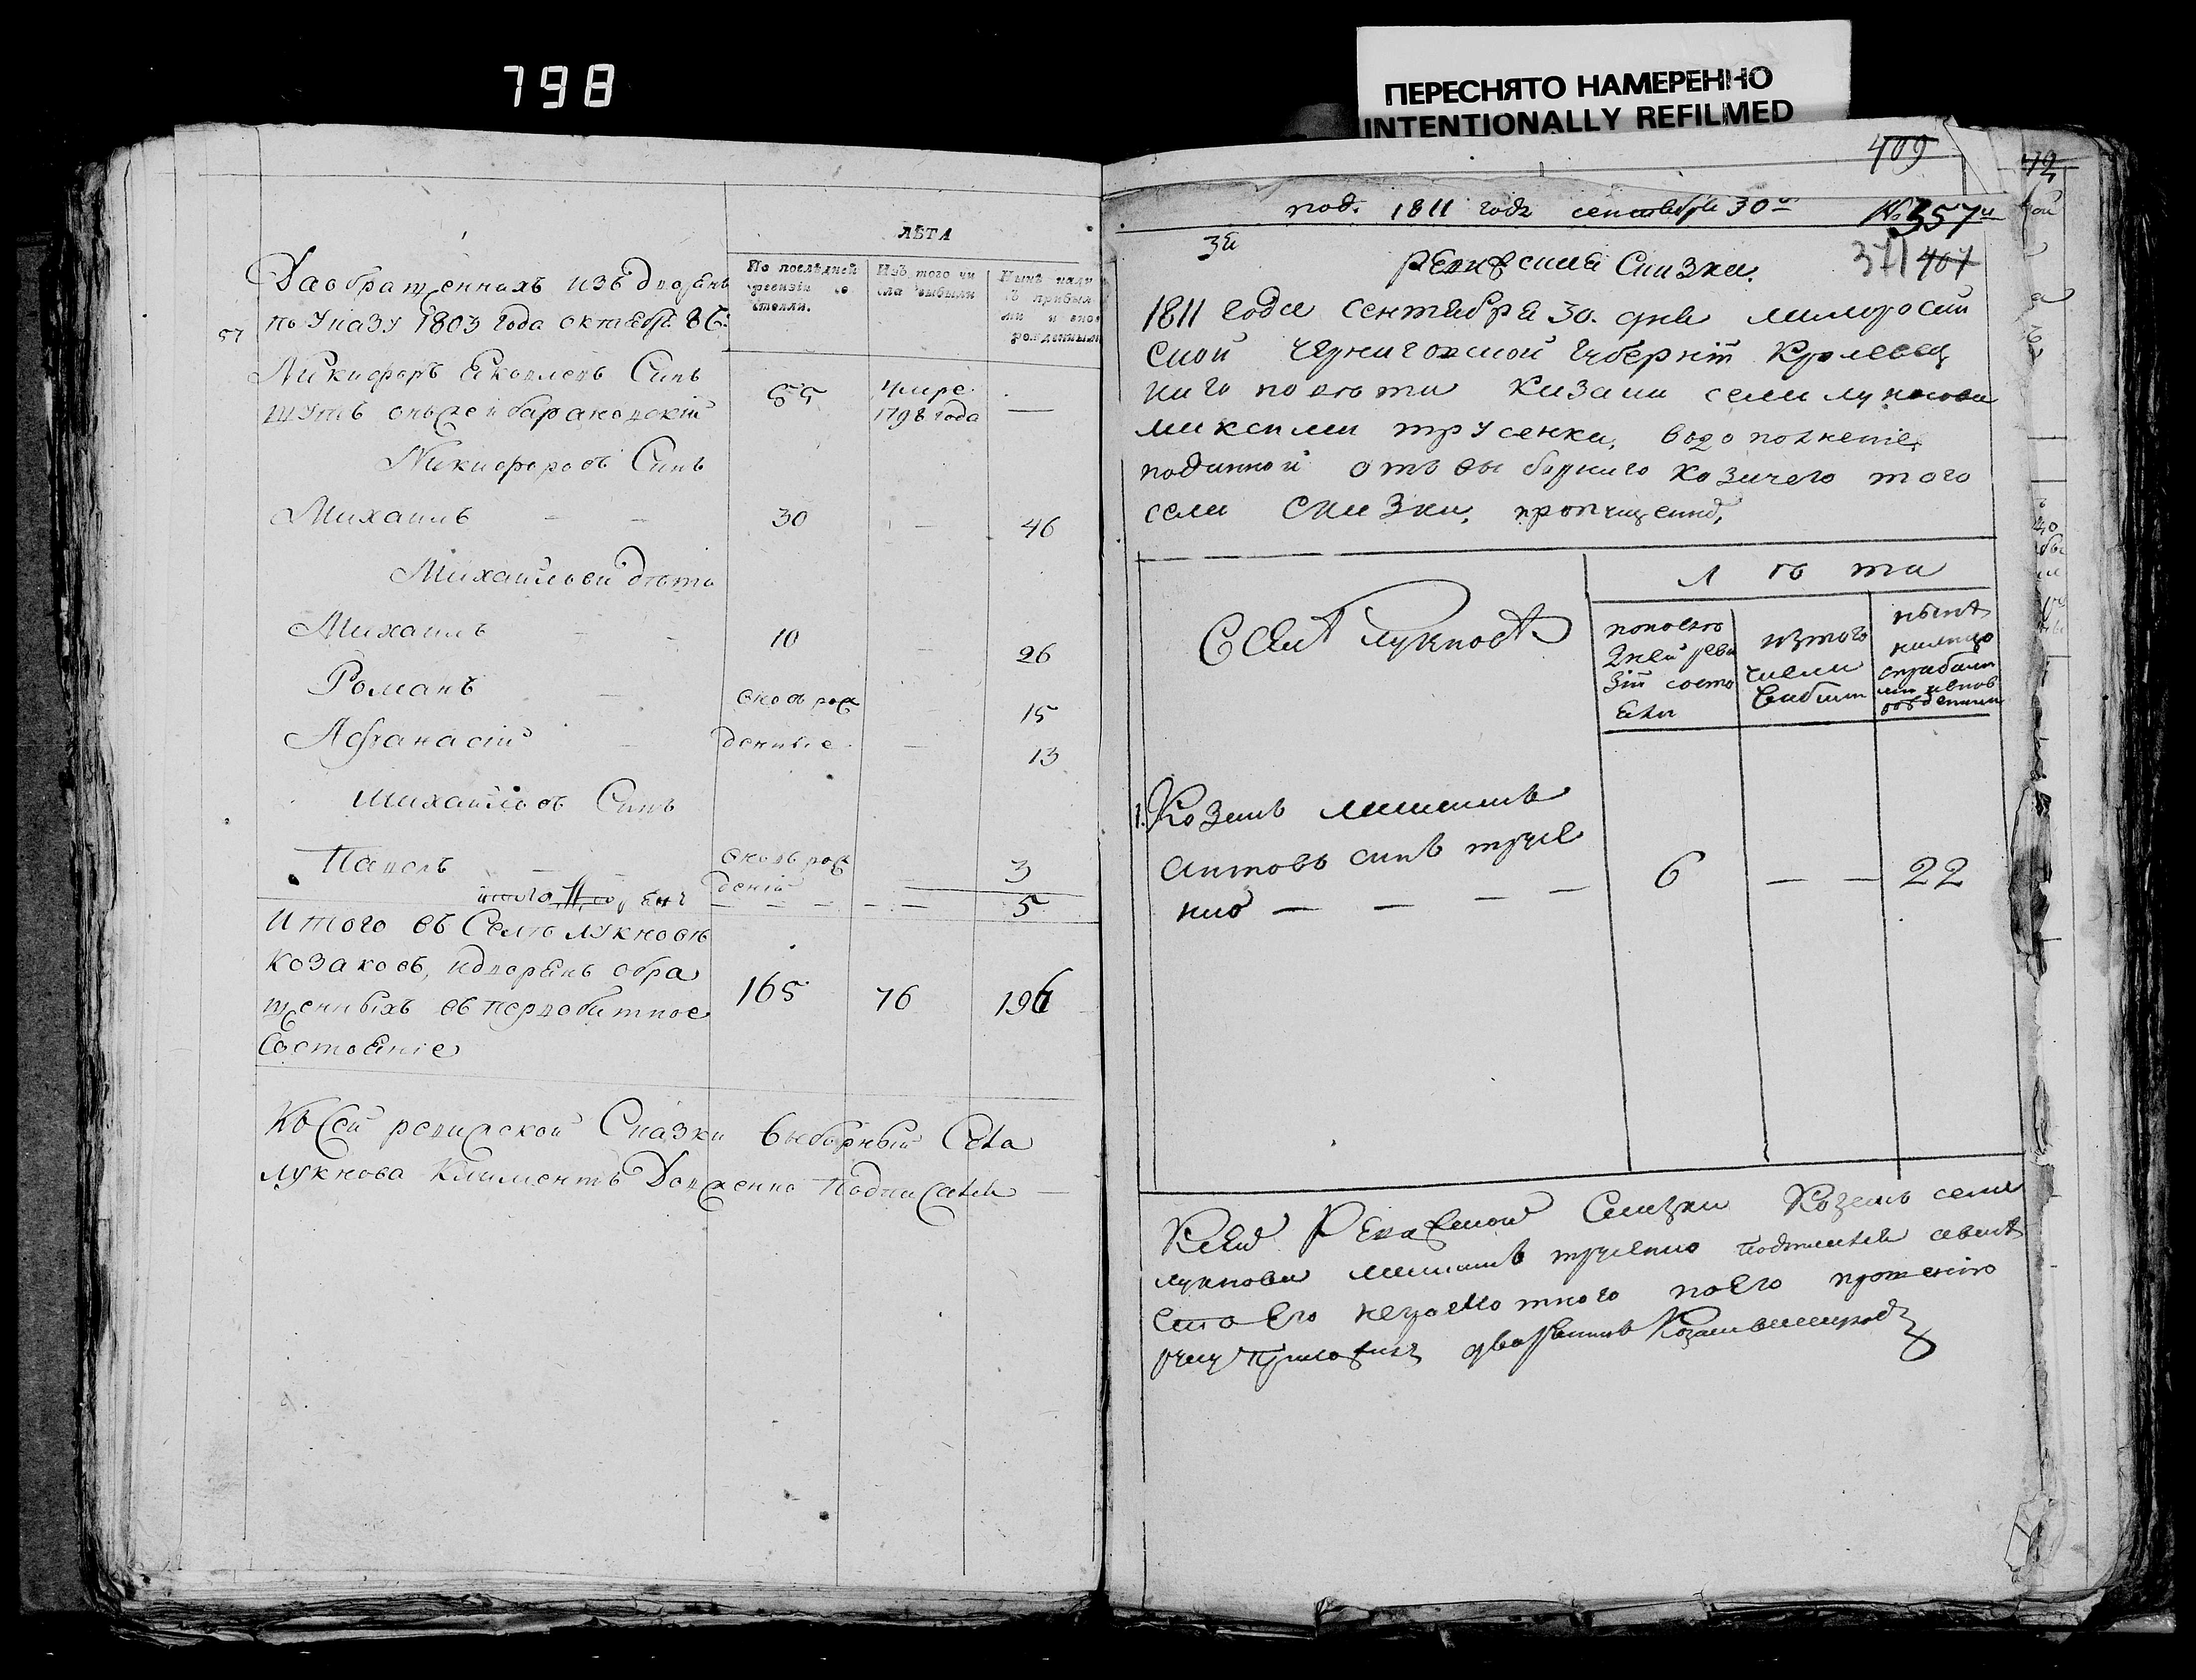 798
ПЕРЕСНЯТО НАМЕРЕННО
INTENTIONALLY REFILMED
ЛѢТА
По послѣдней ревизіи состояли.
Изъ того числа выбыли
Нынѣ на ли
съ прибыл
ми и вно
рожденными
Да обращенныхъ изъ дворянъ
57
по Указу 1803 года октября 8 б:
Никифоръ Яковлевъ Синъ
55
Умре
1798 года
—
барановскій
Никифоровъ Синъ
Михаилъ - - 30 - 46
Михаиловы дѣти
Михаилъ - - 10 - 26
Романъ - вновь рож 15
Афанасій - денные - 13
Михаиловъ Синъ
Павелъ - - вновь рож 3
деній
итого 5
Итого въ Селѣ Лукновѣ
козаковъ, идворянъ обра
щенныхъ въ первобитное
165 76 196
Состояніе
Къ Сей ревизской Сказки выборный Села
Лукнова Климентъ Подписался —
409
под. 1811 года сентября 30го № 357й
3й
371 407
ревизская Сказка.
1811 года сентября 30. дня малоросій
ской черниговской губерніи Кролевец
каго повѣта козака села лукнова
максима трусенка, водополненіе
поданной отъ выборнаго козачего того
села сказки, пропущенно,
Села Лукнова
Л ѣ та
попослѣ
дней реви
зіи состо
яли
изтого
числа
выбыли
нынѣ
налицо
сприбили
ми ивнов
рожденими
1. Козакъ максимъ
антоовъ синъ трусе
нко — — — — 6 — — 22
Ксей Ревизской Сказки Козакъ села
лукнова максимъ трусенко подписался авмѣ
сто его неграмотного поего прошенію
руку приложилъ дворянинъ